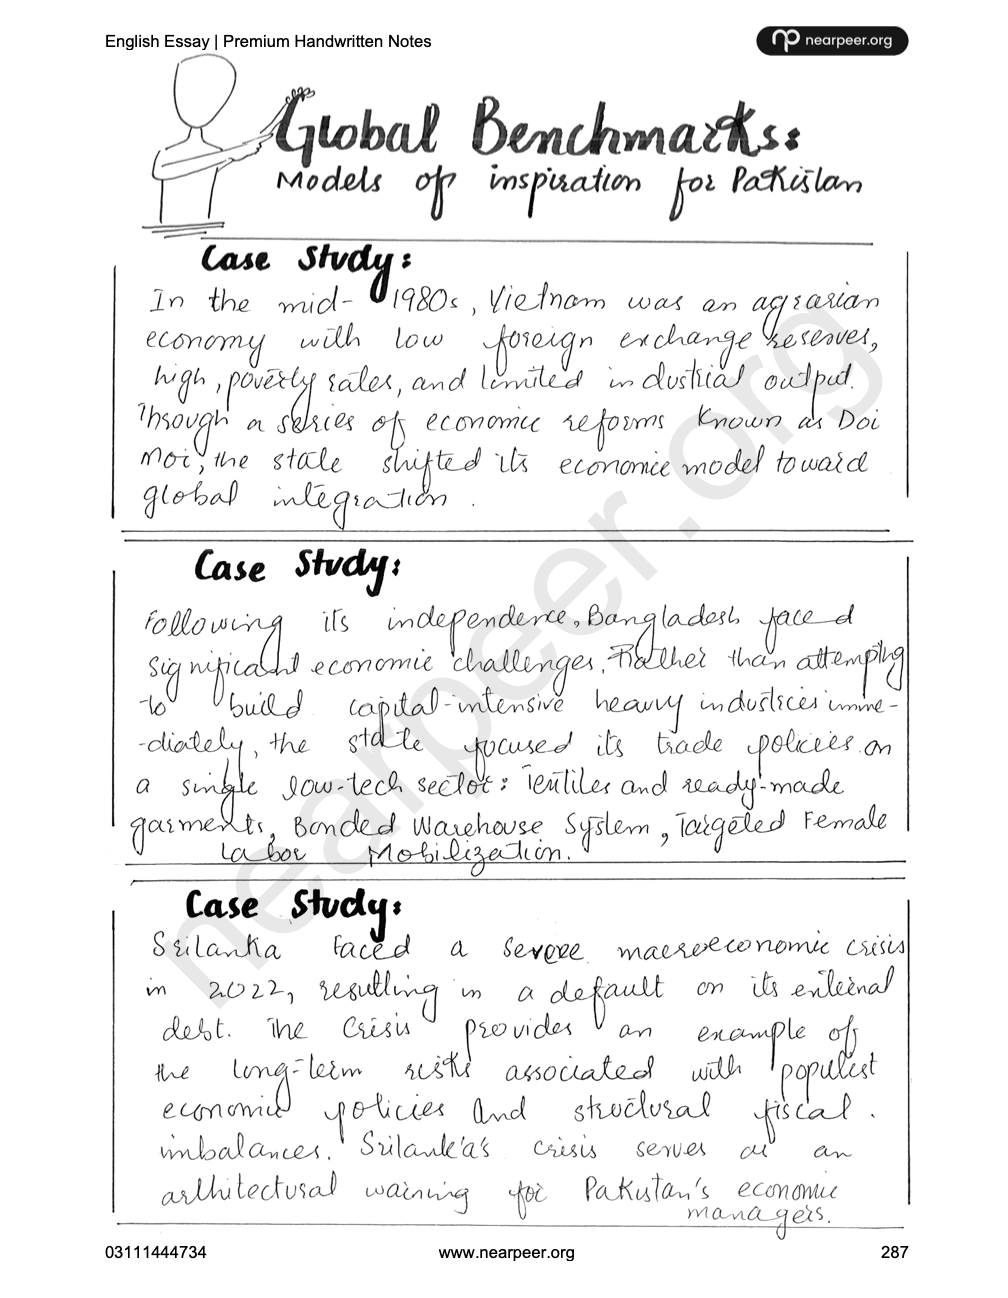 English Essay | Premium Handwritten Notes
nearpeer.org
Global Benchmarks:
Models of inspiration for Pakistan
Case Study:
In the mid- 1980s, Vietnam was an agrarian
economy with low foreign exchange reserves,
high, poverty rates, and limited industrial output.
Through a series of economic reforms known as Doi
Moi, the state shifted its economic model toward
global integration.
Case Study:
Following its independence, Bangladesh faced
significant economic challenges. Rather than attempting
to build capital-intensive heavy industries imme-
-diately, the state focused its trade policies on
a single low-tech sector: Textiles and ready-made
garments, Bonded Warehouse System, Targeted Female
Labor Mobilization.
Case Study:
Srilanka faced a severe macroeconomic crisis
in 2022, resulting in a default on its external
debt. The Crisis provides an example of
the long-term risks associated with populist
economic policies and structural fiscal.
imbalances. Srilanka's crisis serves as an
arhitectural warning for Pakistan's economic
managers.
nearpeer.org
03111444734
www.nearpeer.org
287